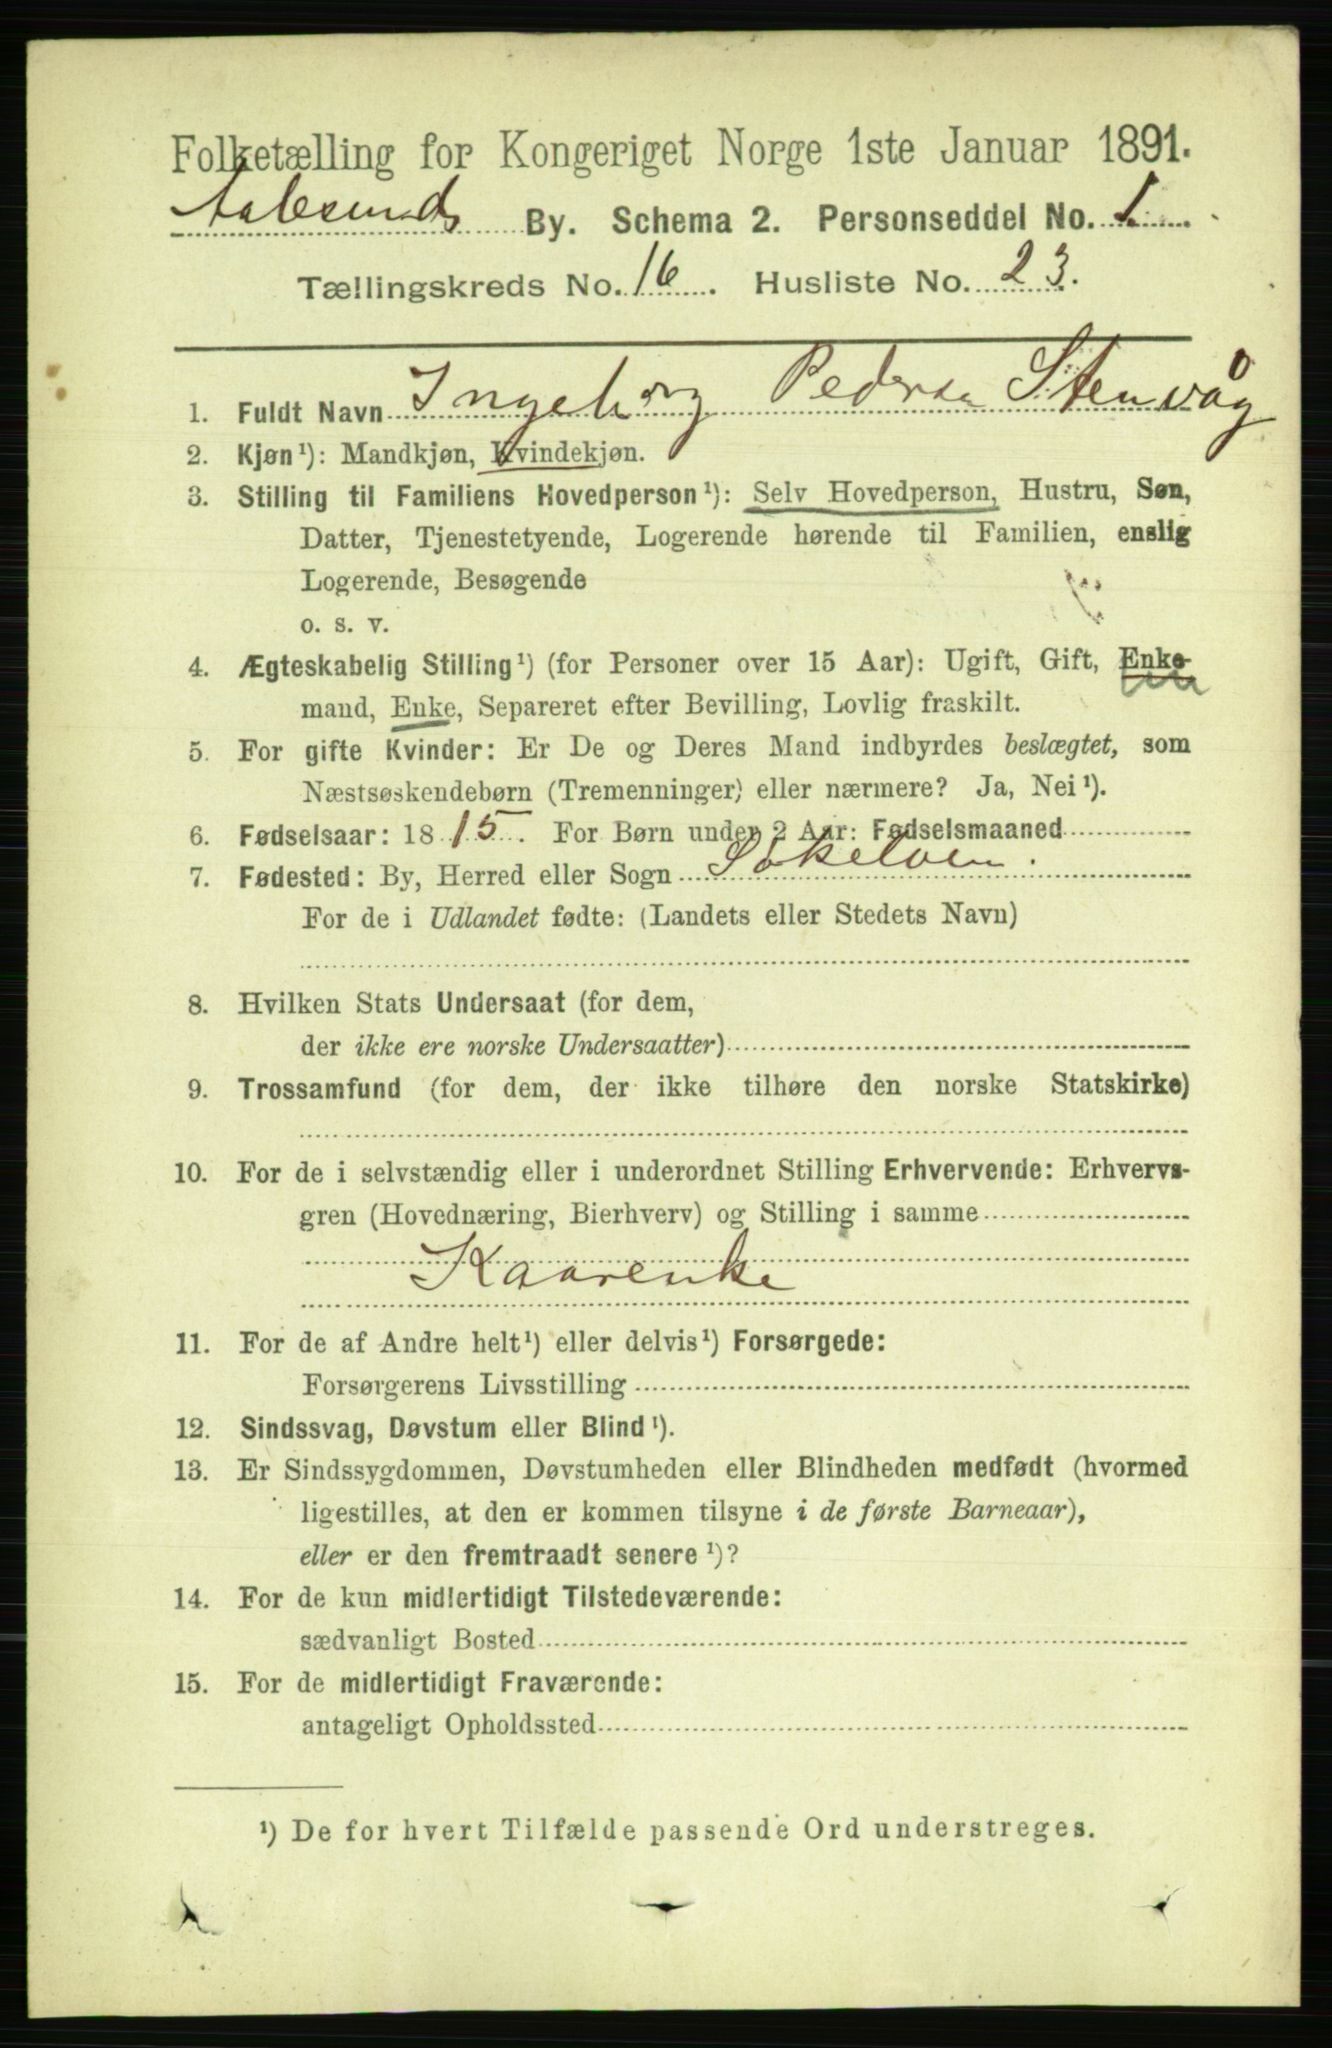 Folketælling for Kongeriget Norge 1ste Januar 1891.
Aalesunds By. Schema 2. Personseddel No. 1
Tællingskreds No. 16. Husliste No. 23.
1. Fuldt Navn Ingeborg Stenvåg
2. Kjøn¹): Mandkjøn, Kvindekjøn.
3. Stilling til Familiens Hovedperson¹): Selv Hovedperson, Hustru, Søn,
Datter, Tjenestetyende, Logerende hørende til Familien, enslig
Logerende, Besøgende
o. s. v.
4. Ægteskabelig Stilling¹) (for Personer over 15 Aar): Ugift, Gift, Enke-
mand, Enke, Separeret efter Bevilling, Lovlig fraskilt.
5. For gifte Kvinder: Er De og Deres Mand indbyrdes beslægtet, som
Næstsøskendebørn (Tremenninger) eller nærmere? Ja, Nei¹).
6. Fødselsaar: 1815. For Børn under 2 Aar: Fødselsmaaned
7. Fødested: By, Herred eller Sogn Søkelven.
For de i Udlandet fødte: (Landets eller Stedets Navn)
8. Hvilken Stats Undersaat (for dem,
der ikke ere norske Undersaatter)
9. Trossamfund (for dem, der ikke tilhøre den norske Statskirke)
10. For de i selvstændig eller i underordnet Stilling Erhvervende: Erhvervs-
gren (Hovednæring, Bierhverv) og Stilling i samme
Kaarenke
11. For de af Andre helt¹) eller delvis¹) Forsørgede:
Forsørgerens Livsstilling
12. Sindssvag, Døvstum eller Blind¹).
13. Er Sindssygdommen, Døvstumheden eller Blindheden medfødt (hvormed
ligestilles, at den er kommen tilsyne i de første Barneaar),
eller er den fremtraadt senere¹)?
14. For de kun midlertidigt Tilstedeværende:
sædvanligt Bosted
15. For de midlertidigt Fraværende:
antageligt Opholdssted
¹) De for hvert Tilfælde passende Ord understreges.